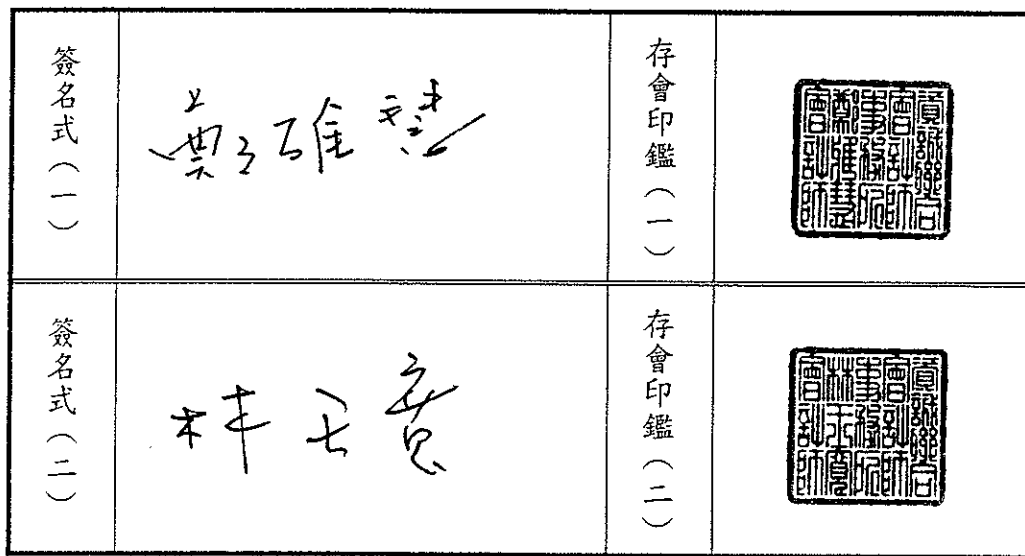 簽名式(一)
鄭雅慧
存會印鑑(一)
資誠聯合
會計師
事務所
鄭雅慧
會計師
簽名式(二)
林玉寬
存會印鑑(二)
資誠聯合
會計師
事務所
林玉寬
會計師